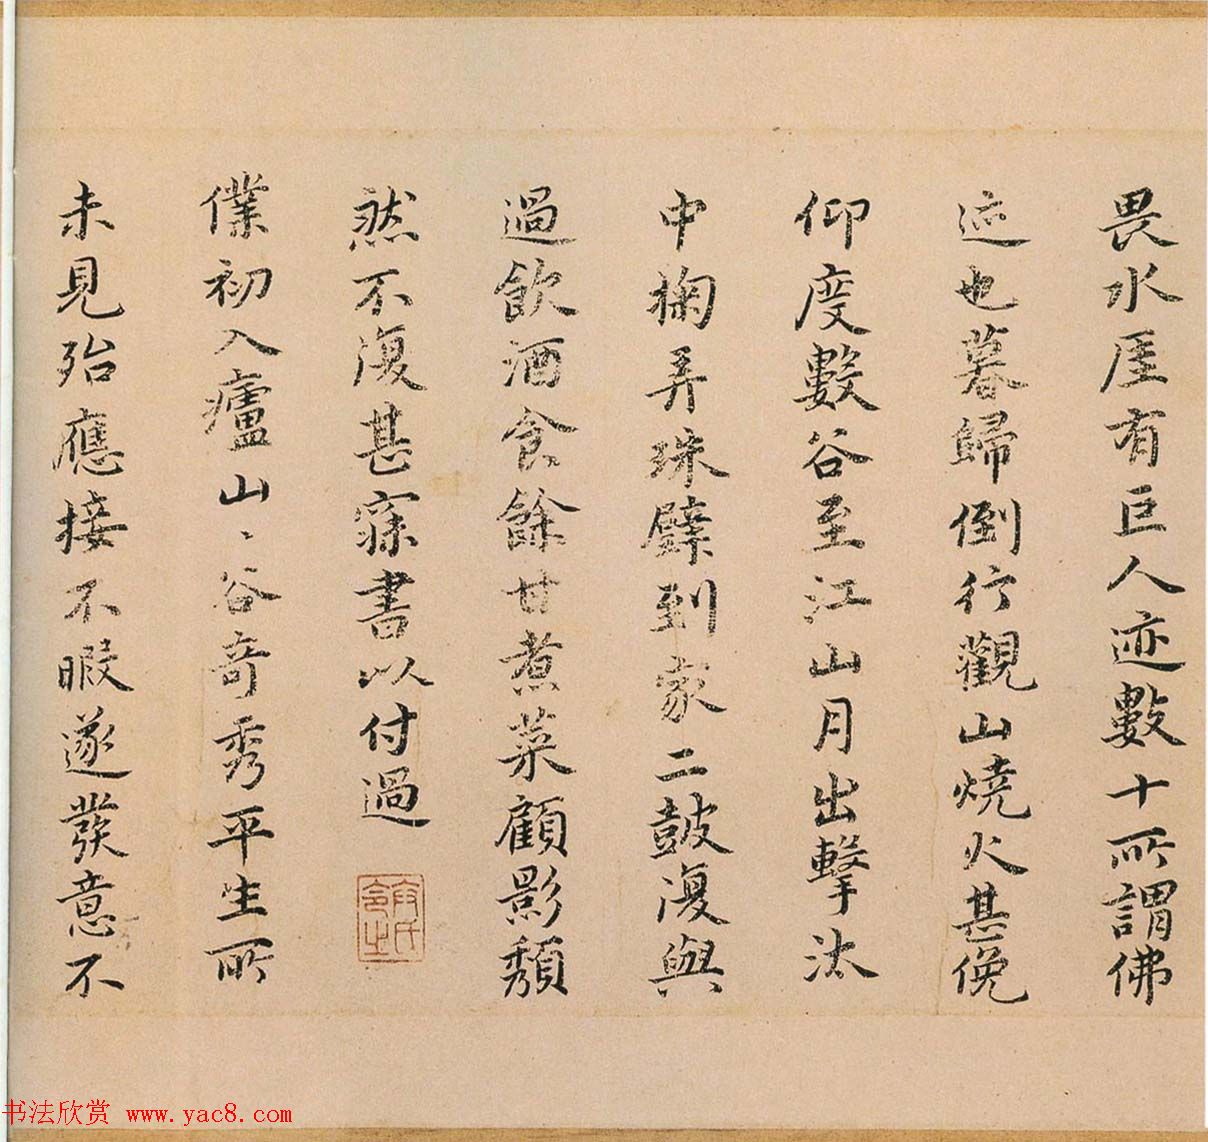 畏水厓有巨人迹數十所謂佛
迹也暮歸倒行觀山燒火甚俛
仰度數谷至江山月出擊汰
中掬弄珠璧到家二鼓復與
過飲酒食餘甘煮菜顧影頹
然不復甚寐書以付過
僕初入廬山、谷奇秀平生所
未見殆應接不暇遂發意不
书法欣赏 www.yac8.com